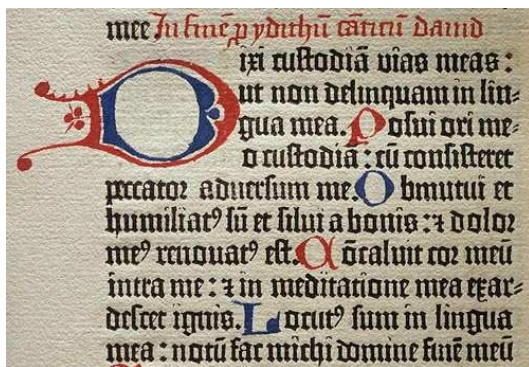 mee In finē ꝓ ydithū cāticū dauid
Dixi custodiā vias meas :
ut non delinquam in lin⸗
gua mea. Posui ori me⸗
o custodiā : cū consisteret
peccator adversum me. Obmutui et
humiliatꝰ sū et silui a bonis : ⁊ dolor
meꝰ renouatꝰ est. Cōcaluit cor meū
intra me : ⁊ in meditatione mea exar⸗
descet ignis. Locutꝰ sum in lingua
mea : notū fac michi domine finē meū